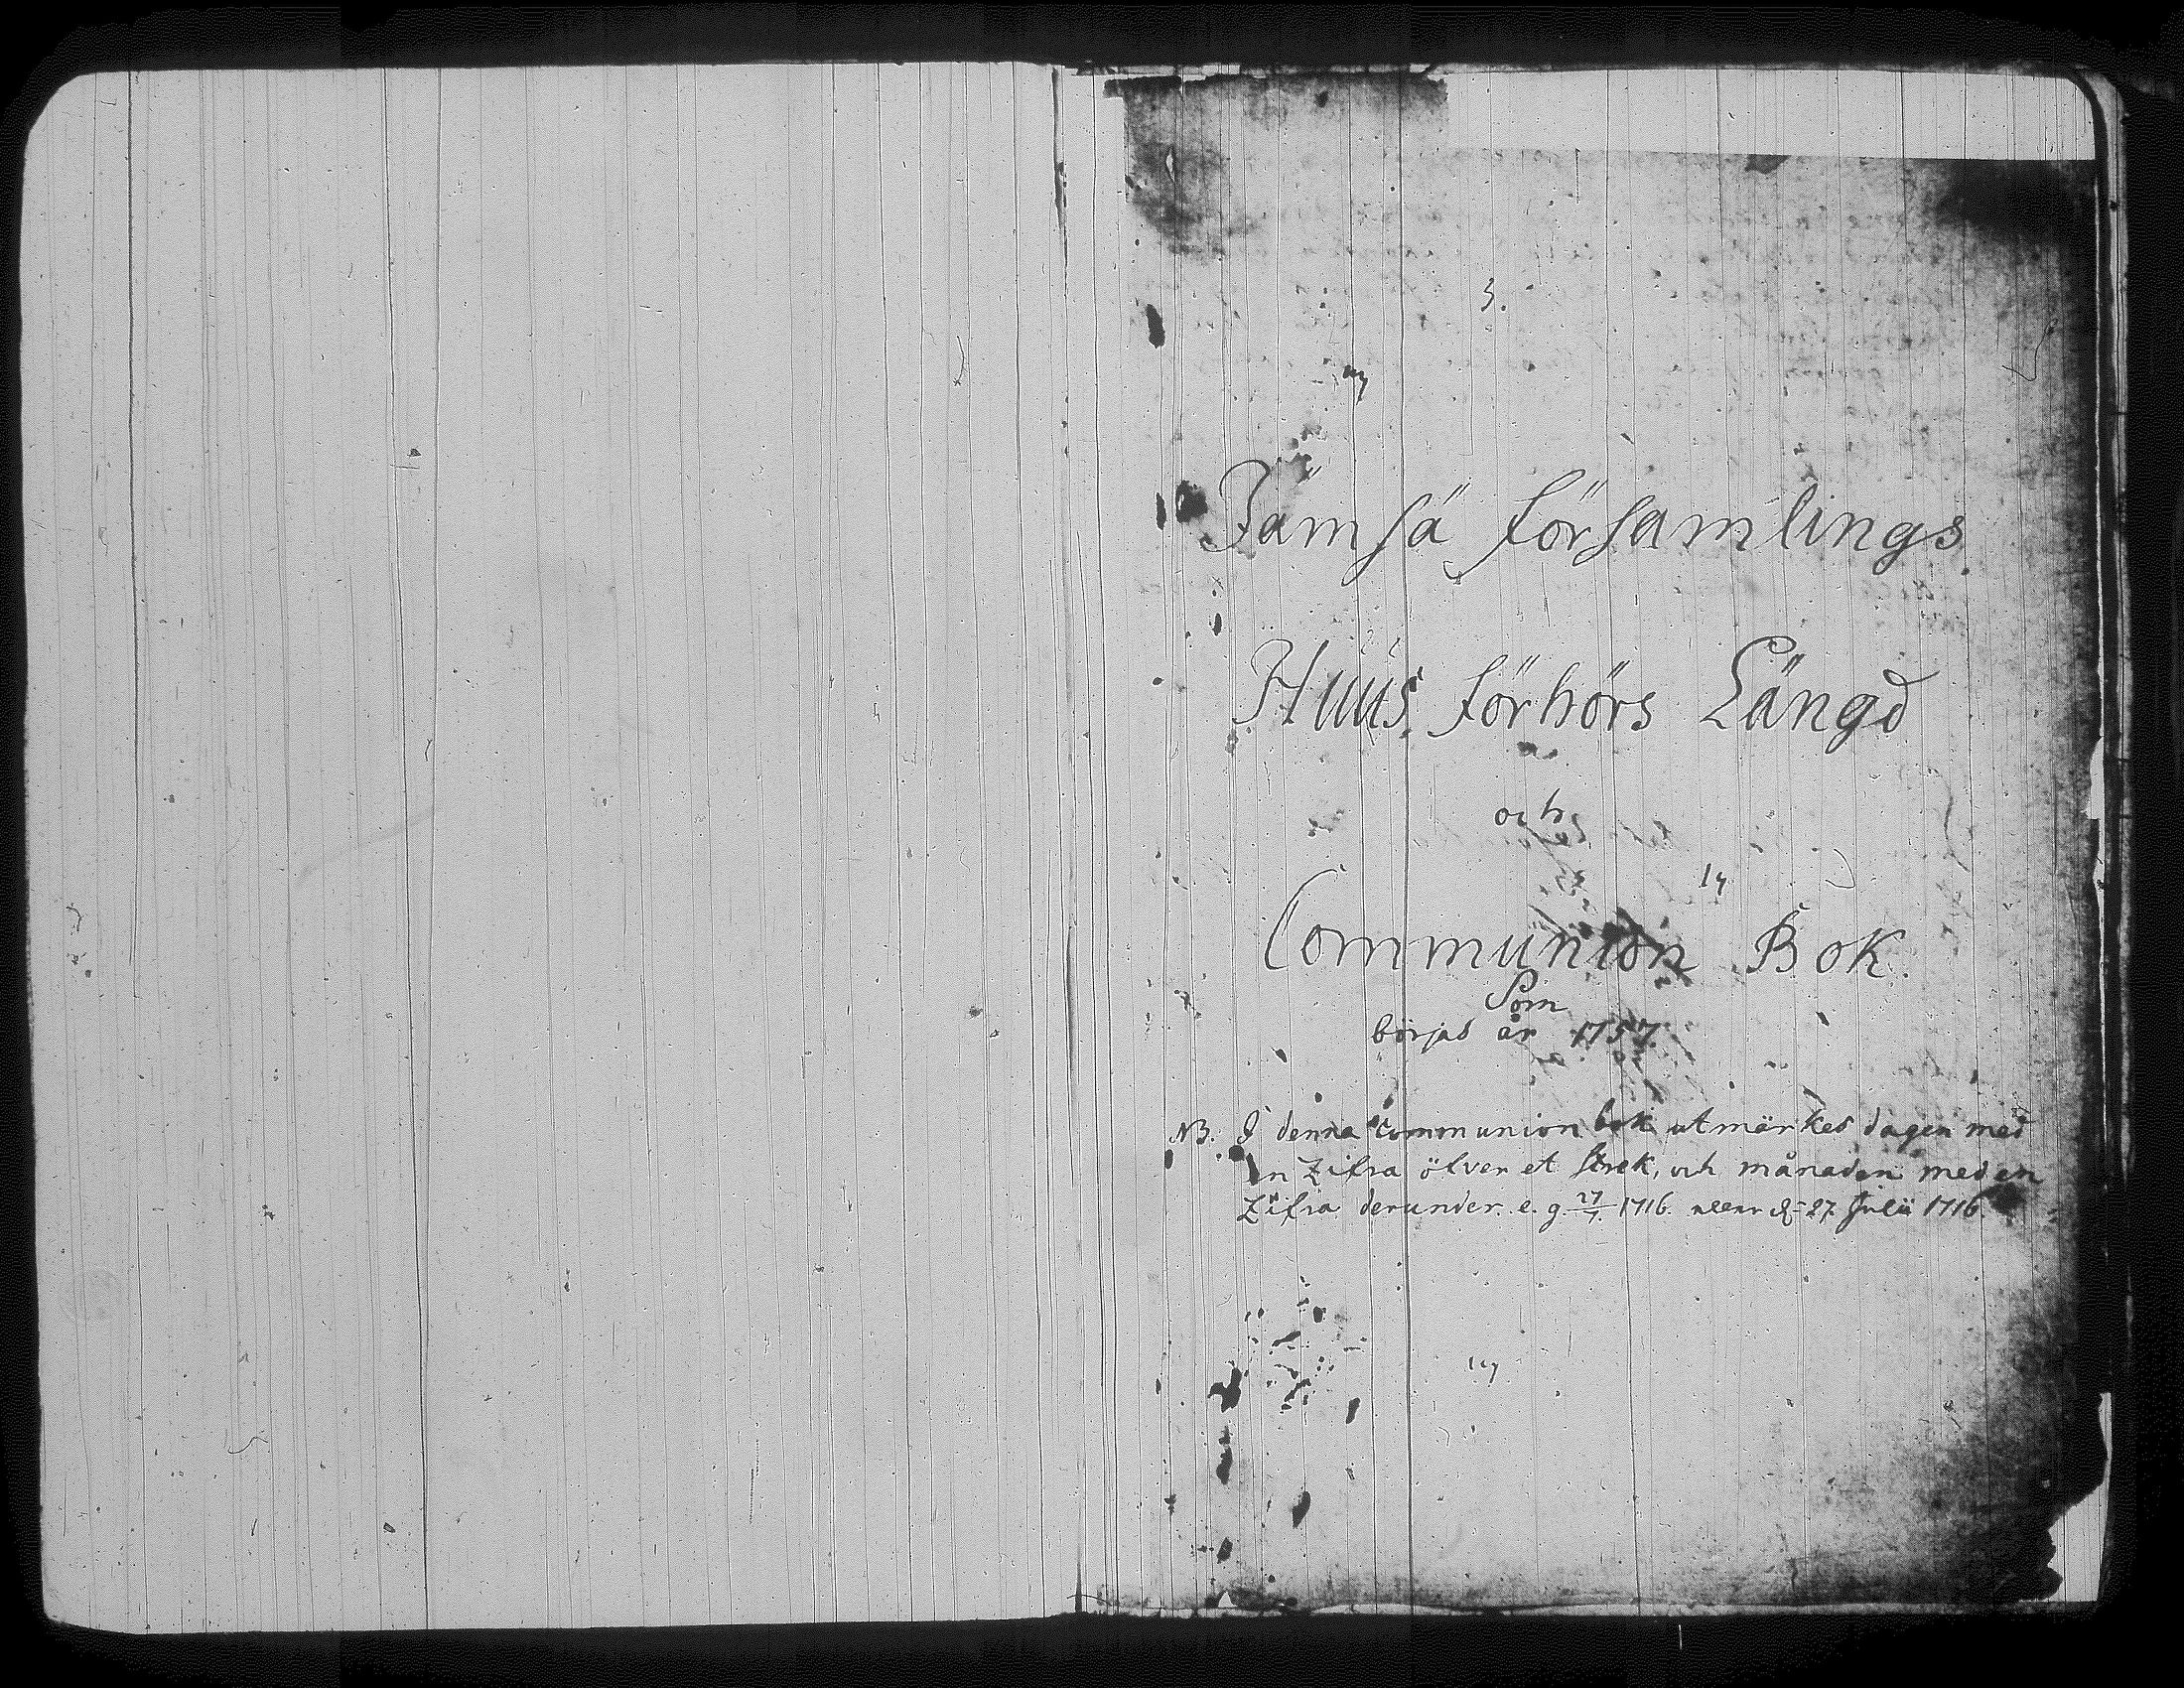 3.
Jämsä församlings
Huus förhörs Längd
och
Communion Bok.
Som
börjas år 1757.
NB. I denna Communion bok utmärkes dagen med
en Zifra öfver et strek, och månaden med en
Zifra derunder. e. g. 27/7. 1716. 27 Julii 1716.